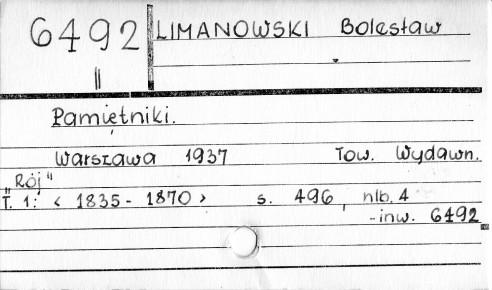 6492 LIMANOWSKI Bolesław
II
Pamiętniki.
Warszawa 1937 Tow. Wydawn.
„Rój"
T. 1: < 1835 - 1870 > s. 496, nlb. 4
- inw. 6492